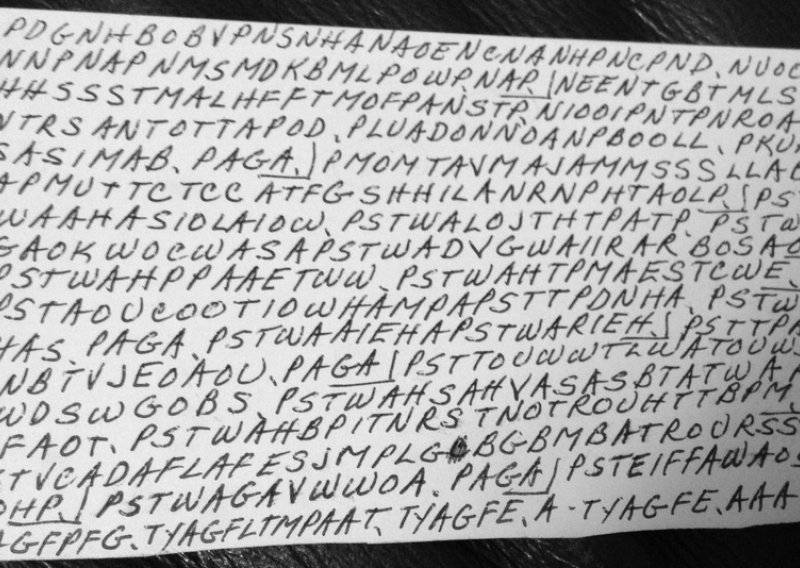 PDGNHBOBVPNSNHANAOENCNANHPNCPND. NUOC
NNPNAPNMSMDKBMLPOWP.NAP. NEENTGBTMLS
HHSSSTMALHFFTMOFPANSTP. NIOOIPNTPNROA
NTRSANTOTTAPOD. PLUADONNOANPBOOLL. PKU
SASIMAB. PAGA. PMOMTAVMAJAMMSSSLLAC
APMUTTCTCC ATFGSHHILANRNPHTAOLP. PST
WAAHASIOLAIOW. PSTWALOJTHTPATP. PSTW
GAOKWOCWASAPSTWADVGWAIIRARBOSAO
PSTWAHPPAAETWW. PSTWAHTPMAESTCWE.
PSTAOUCOOTIOWHAMPAPSTTPDNHA. PSTW
HAS. PAGA. PSTWAAIEHAPSTWARIEH. PSTTPA
NBTVJEOAOU. PAGA PSTTOUWWTLWATOUWS
WDSWGOBS. PSTWAHSAHVASASBTATWAP
FAOT. PSTWAHBPITNRSTNOTROUHTTBPM.
TVCADAFLAFESJMPLG BGBMBATROURSS
OHP. PSTWAGAVWWOA. PAGA PSTEIFFAWAOS
AGFPFG. TYAGFLTMPAAT. TYAGFE. A-TYAGFE. AAA